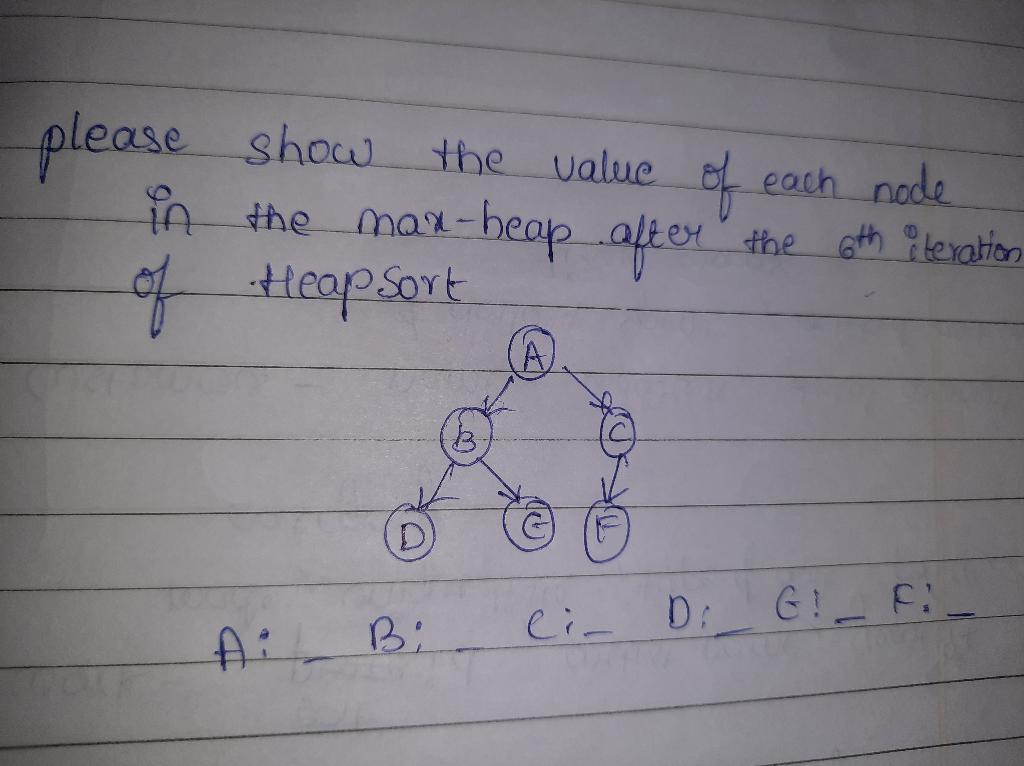 please show the value of each node
in the max-heap after the 6th iteration
of Heapsort
A
B C
D G F
A: _ B: _ C: _ D: _ G: _ F: _